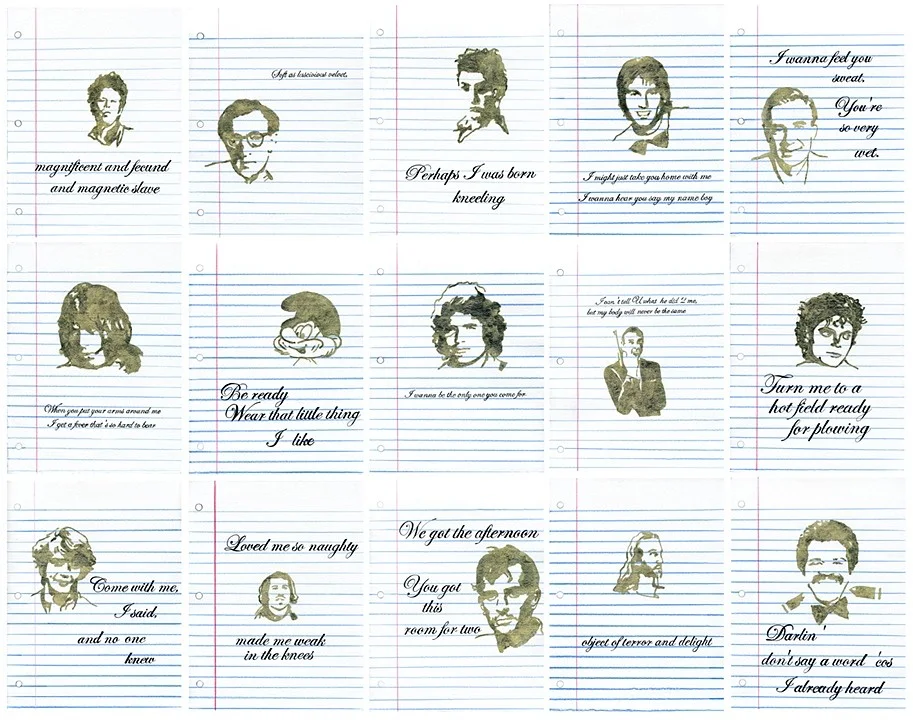 magnificent and fecund
and magnetic slave
Soft as luscivious velvet.
Perhaps I was born
kneeling
I might just take you home with me
I wanna hear you say my name boy
I wanna feel you
sweat.
You're
so very
wet.
When you put your arms around me
I get a fever that's so hard to bear
Be ready
Wear that little thing
I like
I wanna be the only one you come for
I can't tell U what he did 2 me,
but my body will never be the same
Turn me to a
hot field ready
for plowing
Come with me,
I said,
and no one
knew
Loved me so naughty
made me weak
in the knees
We got the afternoon
You got
this
room for two
object of terror and delight
Darlin'
don't say a word 'cos
I already heard